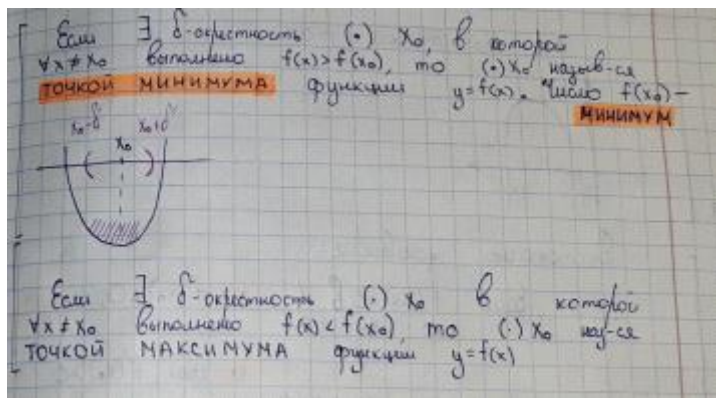 Если ∃ δ-окрестность (·) x₀, в которой
∀x≠x₀ выполнено f(x)>f(x₀), то (·)x₀ назыв-ся
ТОЧКОЙ МИНИМУМА функции y=f(x). Число f(x₀) –
МИНИМУМ
x₀-δ x₀+δ
x₀
( )
Если ∃ δ-окрестность (·) x₀ в которой
∀x≠x₀ выполнено f(x)<f(x₀), то (·) x₀ наз-ся
ТОЧКОЙ МАКСИМУМА функции y=f(x)